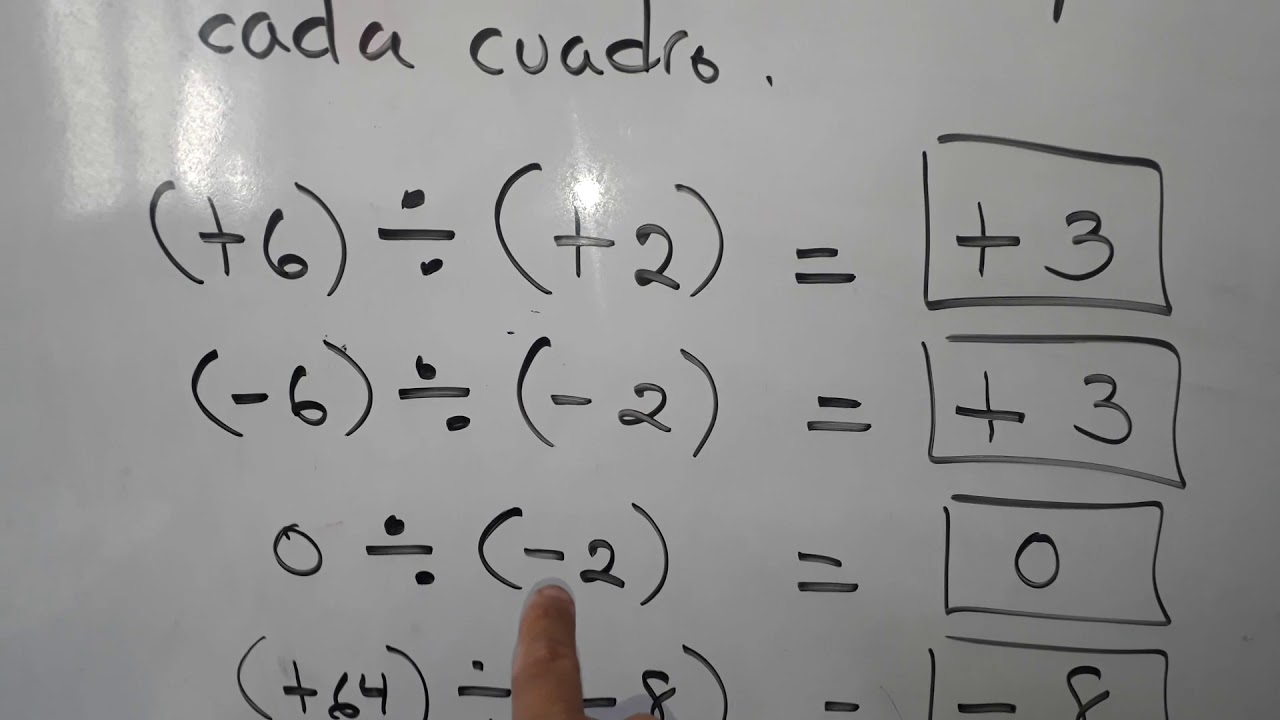 cada cuadro.
(+6) ÷ (+2) = +3
(-6) ÷ (-2) = +3
0 ÷ (-2) = 0
(+64) ÷ -8) = -8